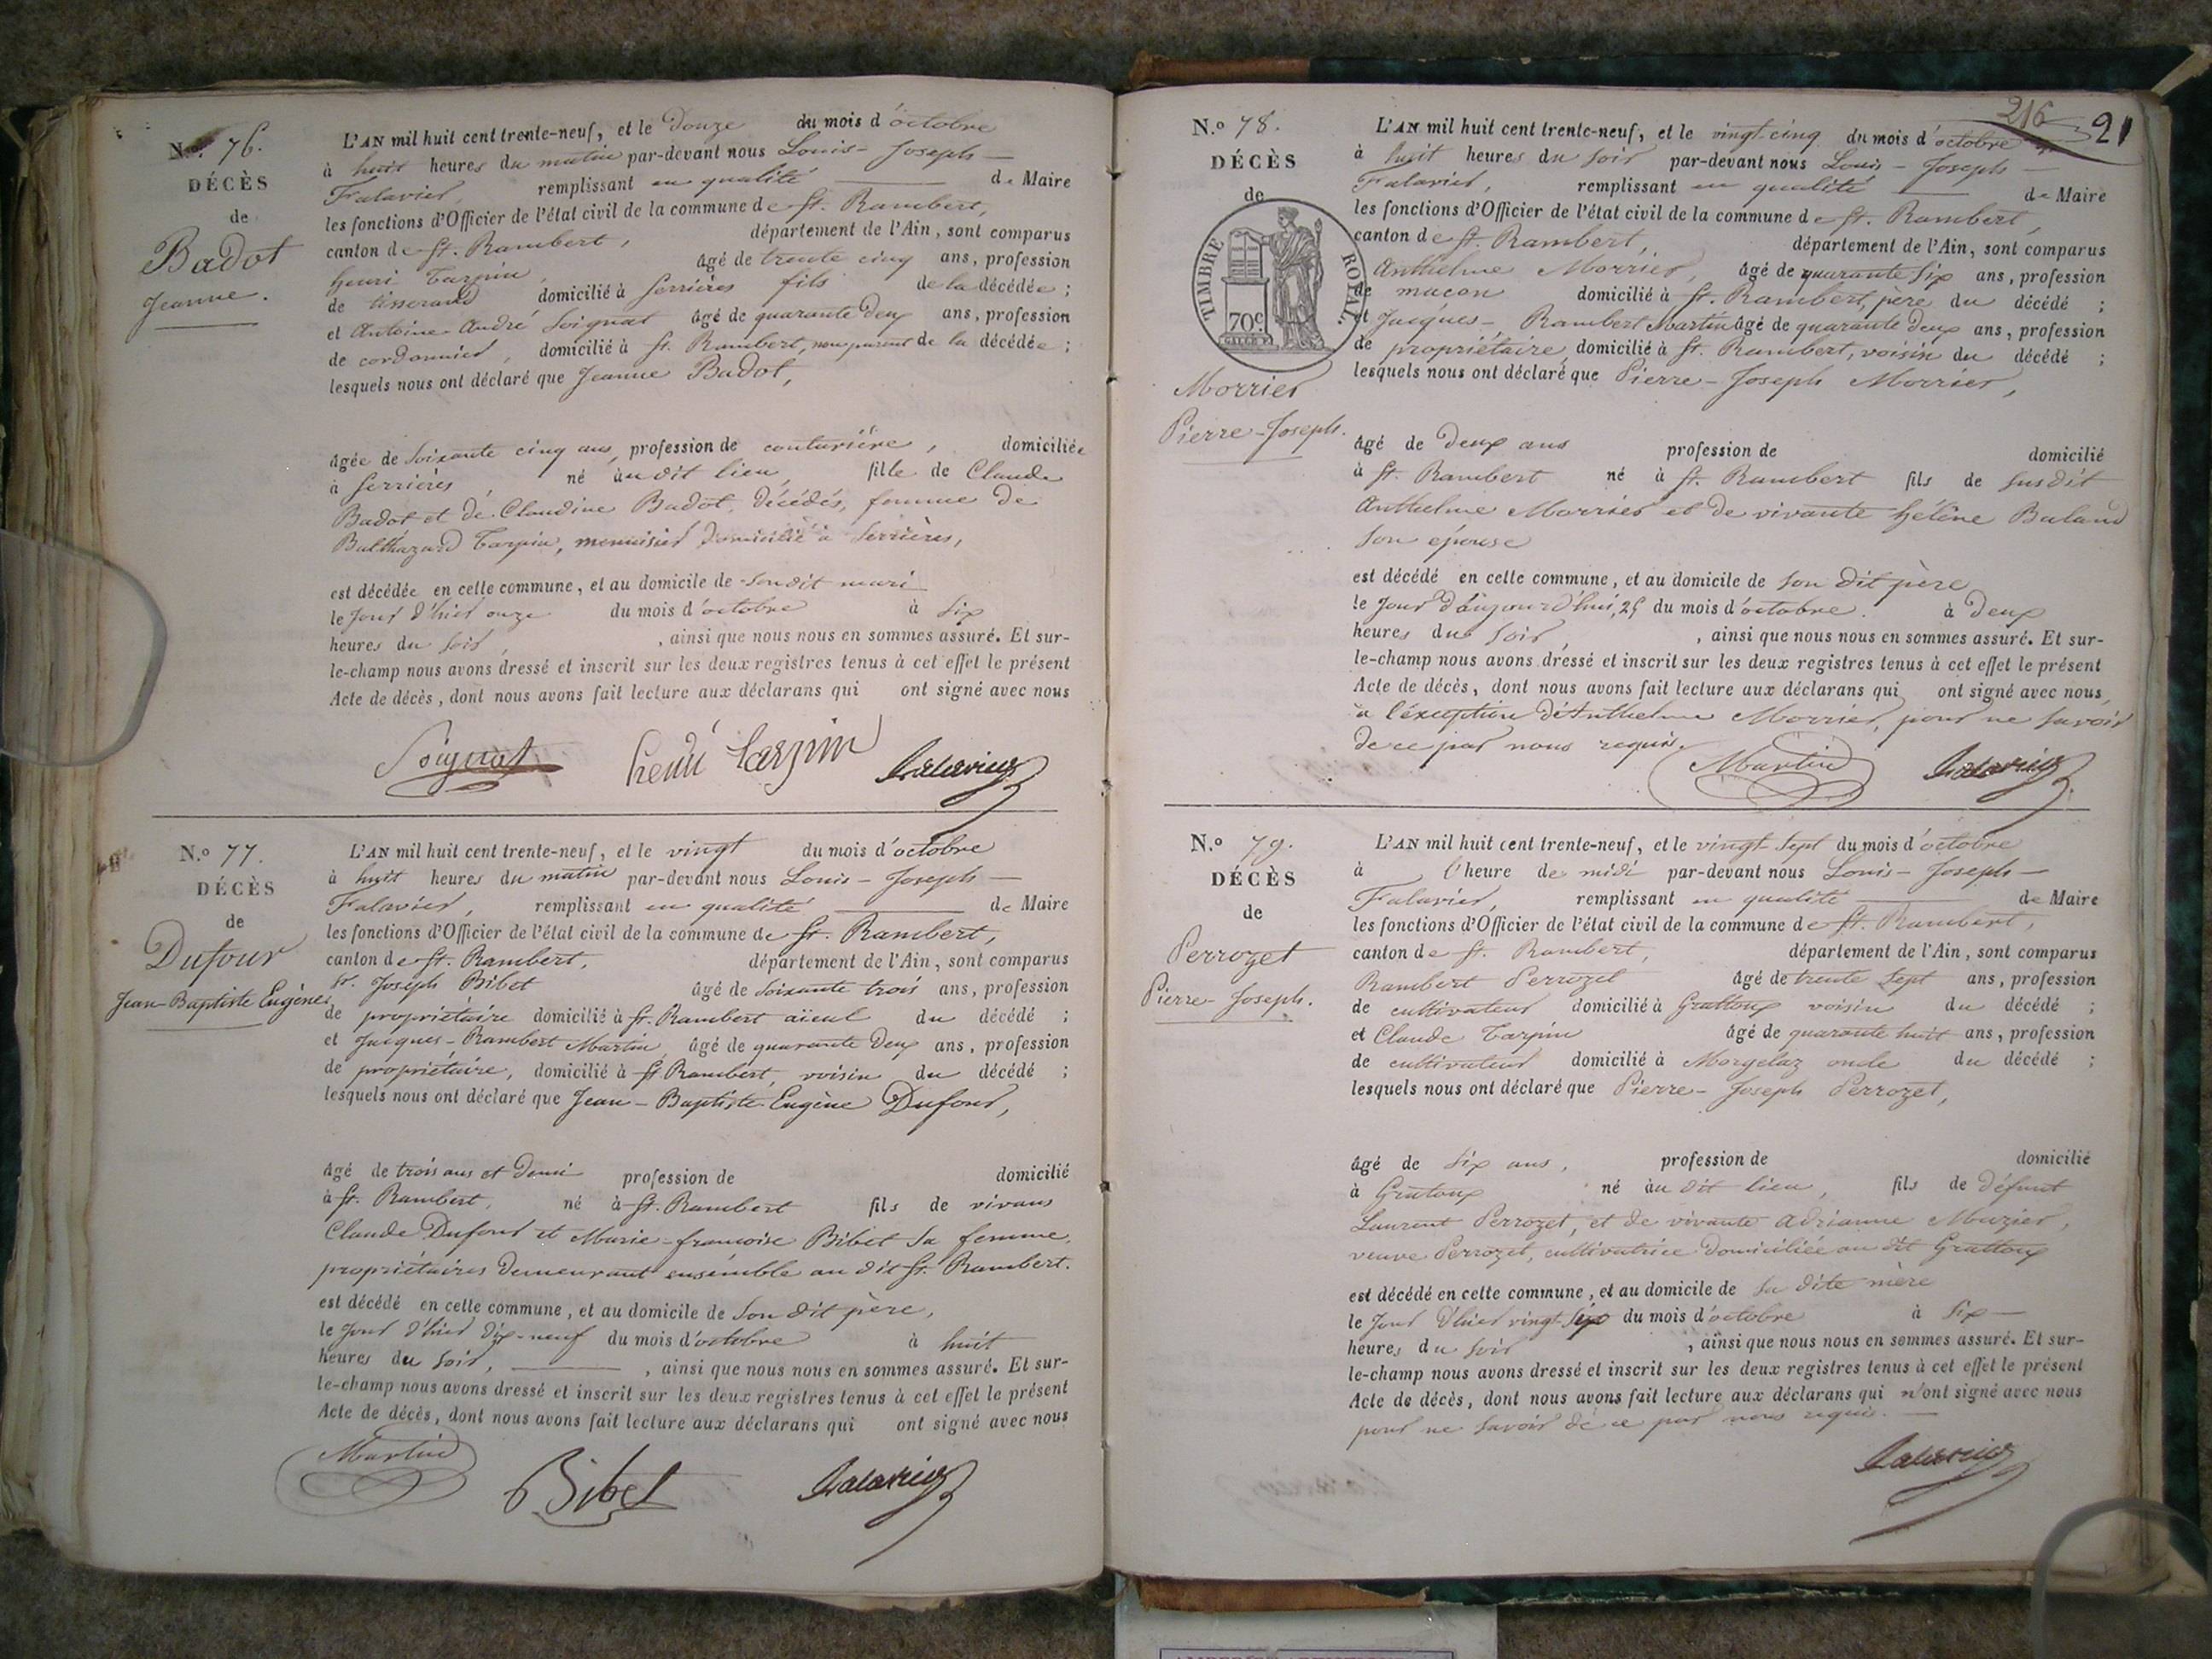 N.º 76.
DÉCÈS
de
Badot
Jeanne.
L'AN mil huit cent trente-neuf, et le Douze du mois d'octobre
à huit heures du matin par-devant nous Louis-Joseph
Falavier, remplissant en qualité de Maire
les fonctions d'Officier de l'état civil de la commune de St. Rambert,
canton de St. Rambert, département de l'Ain, sont comparus
henri Tarpin, âgé de trente cinq ans, profession
de tisserand domicilié à Serrières fils de la décédée ;
et Antoine-André Soignat âgé de quarante deux ans, profession
de cordonnier, domicilié à St. Rambert, non parent de la décédée ;
lesquels nous ont déclaré que Jeanne Badot,
âgée de soixante cinq ans, profession de couturière, domiciliée
à Serrières, né au dit lieu, fille de Claude
Badot et de Claudine Badot, décédés, femme de
Balthazard Tarpin, menuisier domicilié à Serrières,
est décédée en cette commune, et au domicile de son dit mari
le jour d'hier onze du mois d'octobre à six
heures du soir, , ainsi que nous nous en sommes assuré. Et sur-
le-champ nous avons dressé et inscrit sur les deux registres tenus à cet effet le présent
Acte de décès, dont nous avons fait lecture aux déclarans qui ont signé avec nous
Soignat henri tarpin Falavier
N.º 77.
DÉCÈS
de
Dufour
Jean-Baptiste Eugène
L'AN mil huit cent trente-neuf, et le vingt du mois d'octobre
à huit heures du matin par-devant nous Louis-Joseph
Falavier, remplissant en qualité de Maire
les fonctions d'Officier de l'état civil de la commune de St. Rambert,
canton de St. Rambert, département de l'Ain, sont comparus
Sr. Joseph Bibet âgé de soixante trois ans, profession
de propriétaire domicilié à St. Rambert aïeul du décédé ;
et Jacques-Rambert Martin âgé de quarante deux ans, profession
de propriétaire, domicilié à St. Rambert, voisin du décédé ;
lesquels nous ont déclaré que Jean-Baptiste-Eugène Dufour,
âgé de trois ans et demi profession de domicilié
à St. Rambert, né à St. Rambert fils de vivans
Claude Dufour et Marie-françoise Bibet sa femme,
propriétaires demeurant ensemble au dit St. Rambert.
est décédé en cette commune, et au domicile de son dit père,
le jour d'hier dix-neuf du mois d'octobre à huit
heures du soir, , ainsi que nous nous en sommes assuré. Et sur-
le-champ nous avons dressé et inscrit sur les deux registres tenus à cet effet le présent
Acte de décès, dont nous avons fait lecture aux déclarans qui ont signé avec nous
Martin Bibet Falavier
216 21
N.º 78.
DÉCÈS
de
TIMBRE ROYAL.
70c
Morrier
Pierre-Joseph.
L'AN mil huit cent trente-neuf, et le vingt cinq du mois d'octobre
à huit heures du soir par-devant nous Louis-Joseph
Falavier, remplissant en qualité de Maire
les fonctions d'Officier de l'état civil de la commune de St. Rambert,
canton de St. Rambert, département de l'Ain, sont comparus
Anthelme Morrier, âgé de quarante six ans, profession
de maçon domicilié à St. Rambert, père du décédé ;
et Jacques-Rambert Martin âgé de quarante deux ans, profession
de propriétaire domicilié à St. Rambert, voisin du décédé ;
lesquels nous ont déclaré que Pierre-Joseph Morrier,
âgé de deux ans profession de domicilié
à St. Rambert né à St. Rambert fils de susdit
Anthelme Morrier et de vivante hélène Baland
son épouse
est décédé en cette commune, et au domicile de son dit père
le jour d'aujourd'hui, 25 du mois d'octobre. à deux
heures du soir, , ainsi que nous nous en sommes assuré. Et sur-
le-champ nous avons dressé et inscrit sur les deux registres tenus à cet effet le présent
Acte de décès, dont nous avons fait lecture aux déclarans qui ont signé avec nous,
à l'exception d'Anthelme Morrier, pour ne savoir
de ce par nous requis.
Martin Falavier
N.º 79.
DÉCÈS
de
Perrozet
Pierre-Joseph.
L'AN mil huit cent trente-neuf, et le vingt sept du mois d'octobre
à l'heure de midi par-devant nous Louis-Joseph
Falavier, remplissant en qualité de Maire
les fonctions d'Officier de l'état civil de la commune de St. Rambert,
canton de St. Rambert, département de l'Ain, sont comparus
Rambert Perrozet âgé de trente sept ans, profession
de cultivateur domicilié à Grattoux voisin du décédé ;
et Claude Tarpin âgé de quarante huit ans, profession
de cultivateur domicilié à Morgelaz oncle du décédé ;
lesquels nous ont déclaré que Pierre-Joseph Perrozet,
âgé de six ans, profession de domicilié
à Gratoux né au dit lieu, fils de défunt
Laurent Perrozet, et de vivante Adrianne Muzier,
veuve Perrozet, cultivatrice domiciliée au dit Grattoux
est décédé en cette commune, et au domicile de sa dite mère
le jour d'hier vingt six du mois d'octobre à six
heures du soir , ainsi que nous nous en sommes assuré. Et sur-
le-champ nous avons dressé et inscrit sur les deux registres tenus à cet effet le présent
Acte de décès, dont nous avons fait lecture aux déclarans qui n'ont signé avec nous
pour ne savoir de ce par nous requis.
Falavier